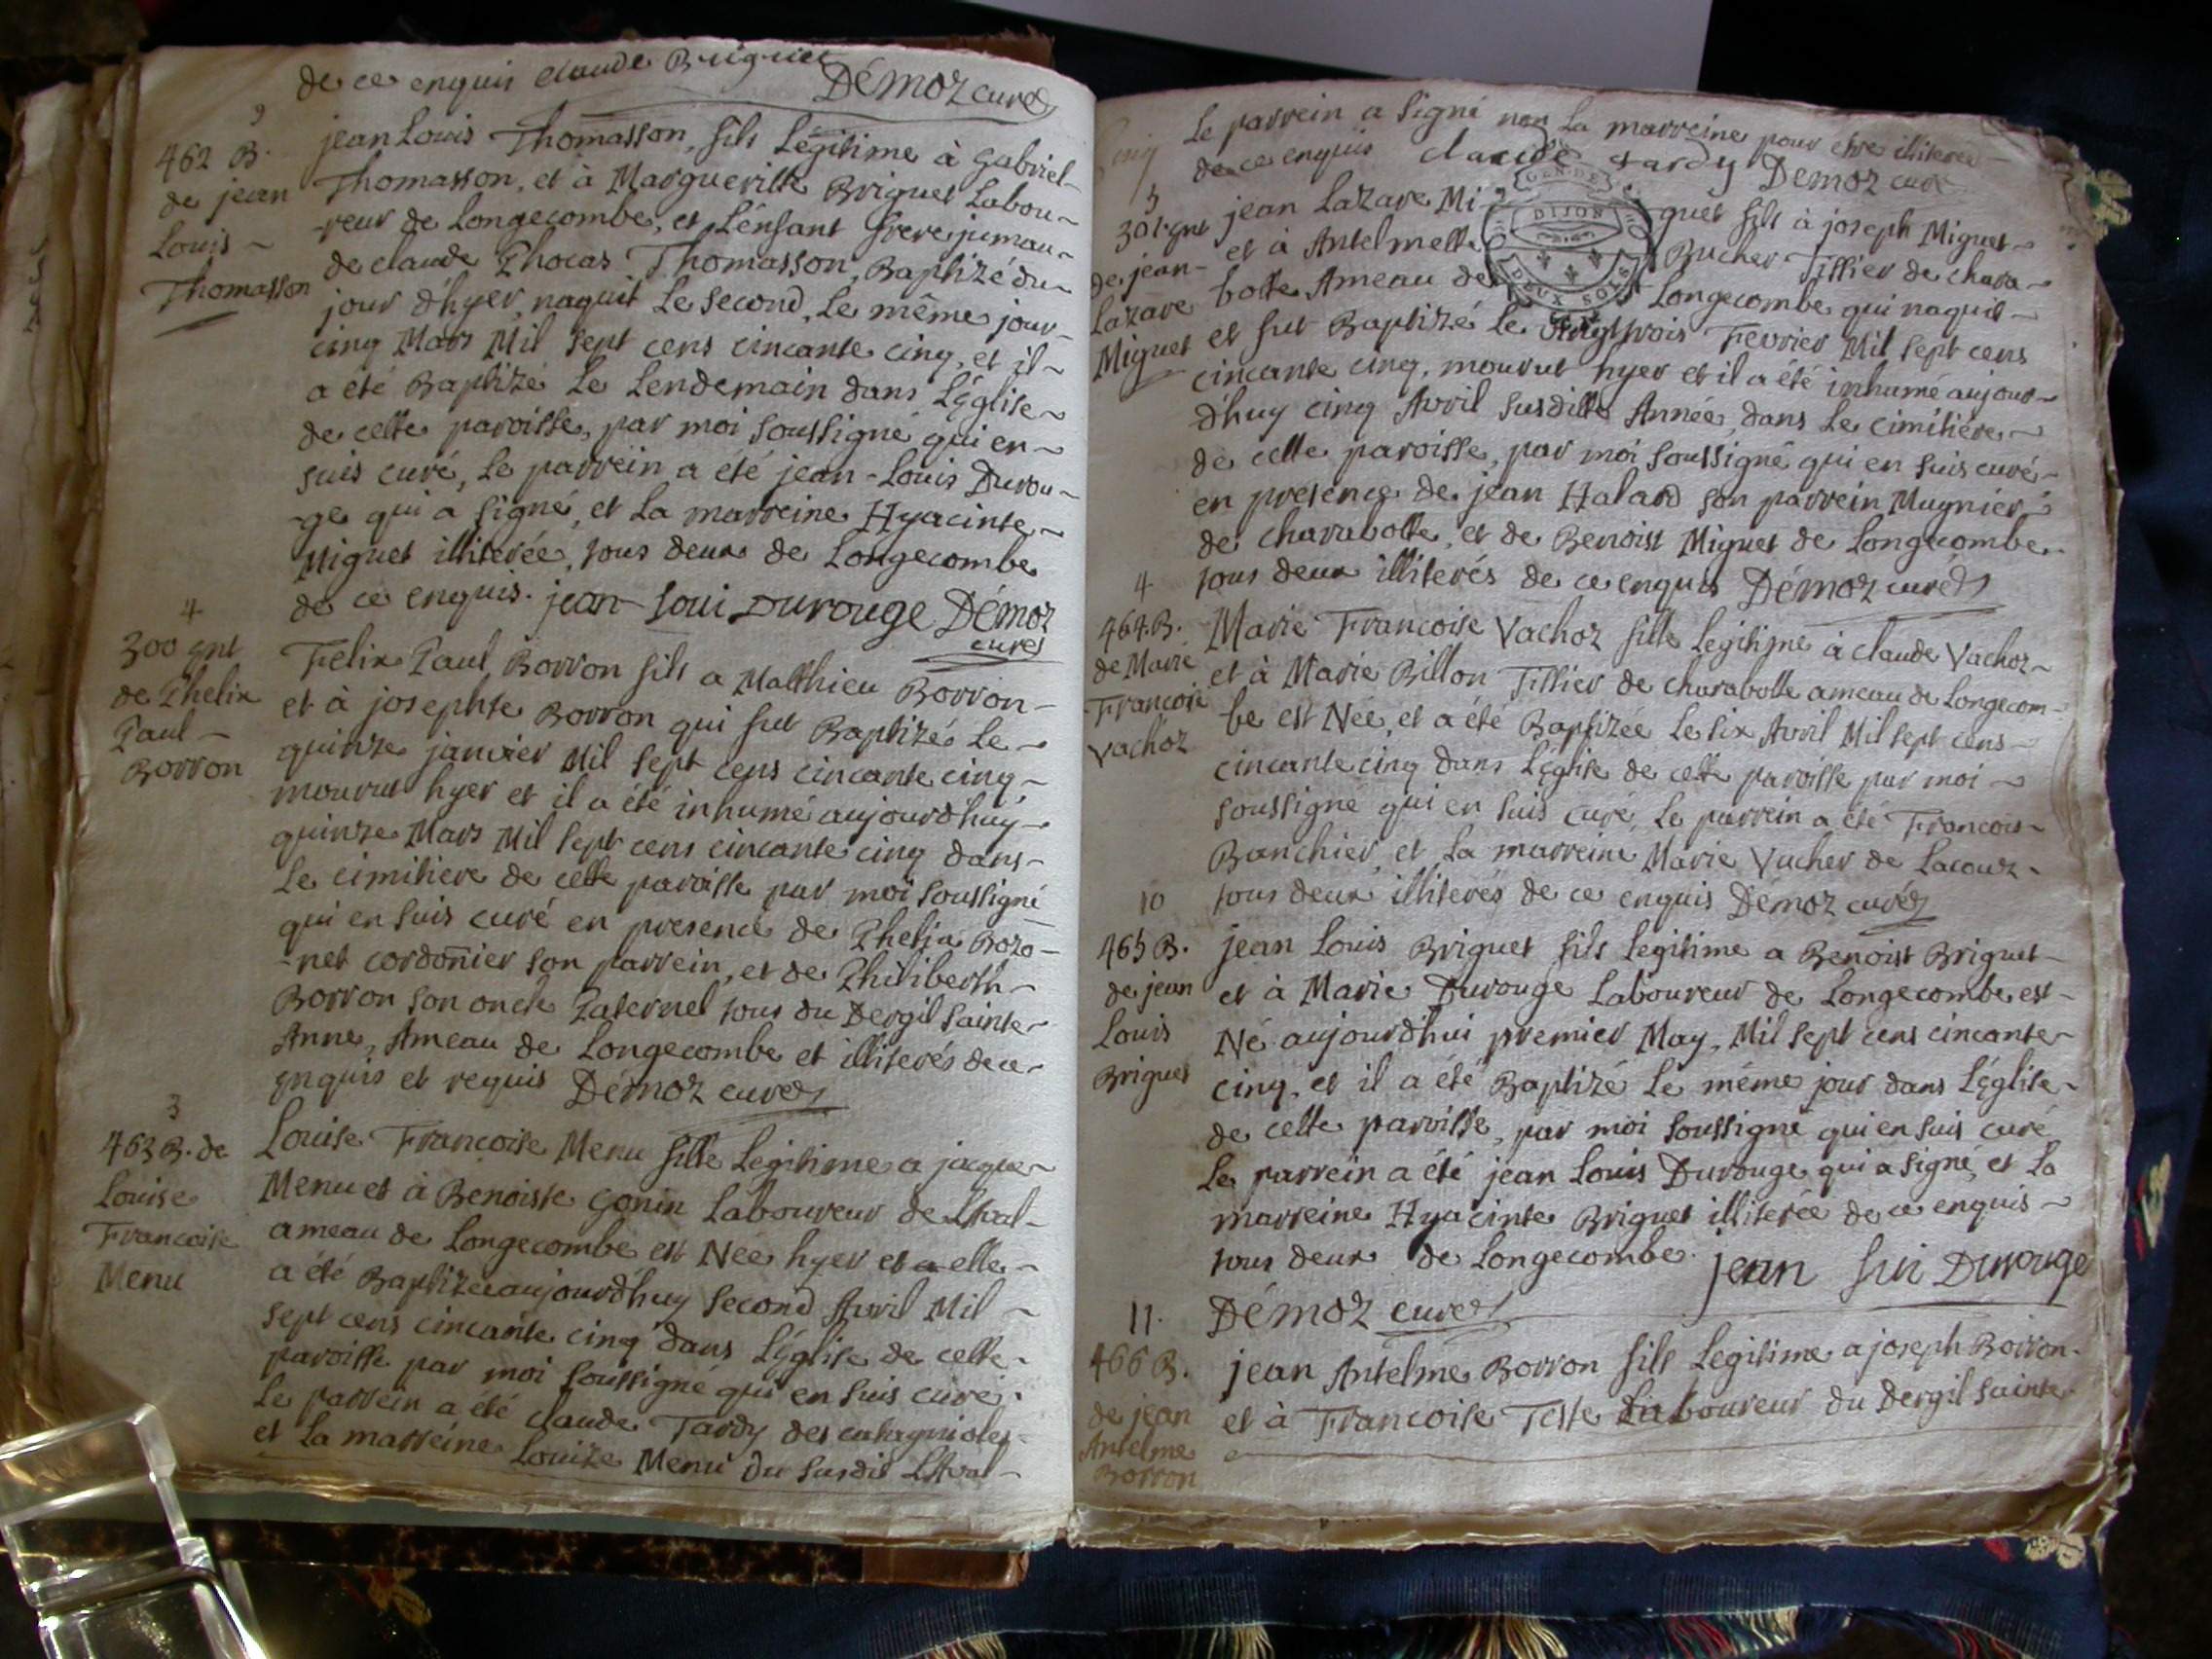 de ce enquis claude Briguet
Démoz curé
9
462 B.
de jean
Louis
Thomasson
jean Louis Thomasson, fils Légitime à Gabriel
Thomasson, et à Margueritte Briguet Labou-
-reur de Longecombe, et L'énfant frere jumau
de claude Phocas Thomasson, Baptizé du
jour d'hyer, naquit Le second, Le même jour
cinq Mars Mil sept cens cincante cinq, et il
a été Baptizé Le Lendemain dans L'église
de cette paroisse, par moi soussigné qui en
suis curé, Le parrein a été jean-Louis Durou-
-ge qui a signé, et La marreine Hyacinte
Miguet illiterée, tous deux de Longecombe
de ce enquis. jean Loui Durouge Démoz
curé
4
300 gnt
de Phelix
Paul
Borron
Felix Paul Borron fils a Matthieu Borron
et à josephte Borron qui fut Baptizé Le
quinze janvier Mil sept cens cincante cinq,
mourut hyer et il a été inhumé aujourdhuy
quinze Mars Mil sept cens cincante cinq dans
Le cimitiere de cette paroisse par moi soussigné
qui en suis curé en presence de Phelix Bozo-
-net cordonnier son parrein, et de Philiberth
Borron son oncle Paternel tous du Dergil sainte
Anne, Ameau de Longecombe et illiterés de ce
enquis et requis Démoz curé
3
463 B. de
Louise
Francoise
Menu
Louise Francoise Menu fille Legitime a jacque
Menu et à Benoiste Gonin Laboureur de Lhval
ameau de Longecombe est Née hyer et a elle
a été Baptizée aujourd'huy second Avril Mil
sept cens cincante cinq dans L'église de cette
paroisse par moi soussigné qui en suis curé,
Le parrein a été claude Tardy des
et La marreine Louize Menu du susdit
Le parrein a signé non La marreine pour etre illiterée
de ce enquis claude tardy Demoz curé
GEN DE
DIJON
DEUX SOLS
5
301 gnt
de jean
Lazare
Miguet
jean Lazare Miguet fils à joseph Miguet
et à Antelmette Bucher Tissier de chara-
botte Ameau de Longecombe qui naquit
et fut Baptizé Le vingttrois Fevrier Mil sept cens
cincante cinq, mourut hyer et il a été inhumé aujour-
d'huy cinq Avril susditte Année, dans Le cimitiére
de cette paroisse, par moi soussigné qui en suis curé
en presence de jean Halard son parrein Mugnier
de charabotte, et de Benoist Miguet de Longecombe
tous deux illiterés de ce enquis Démoz curé
4
464 B.
de Marie
Francoise
Vachoz
Marie Francoise Vachoz fille Legitime à claude Vachoz
et à Marie Billon Tissier de charabotte ameau de Longecom-
be est Née, et a été Baptizée Le six Avril Mil sept cens
cincante cinq dans L'église de cette paroisse par moi
soussigné qui en suis curé, Le parrein a été Francois
Banchier, et La marreine Marie Vucher de Lacouz
tous deux illiterés de ce enquis Demoz curé
10
465 B.
de jean
Louis
Briguet
jean Louis Briguet fils Legitime a Benoist Briguet
et à Marie Durouge Laboureur de Longecombe est
Né aujourd'hui premier May, Mil sept cens cincante
cinq, et il a été Baptizé Le même jour dans L'église
de cette paroisse, par moi soussigné qui en suis curé
Le parrein a été jean Louis Durouge qui a signé, et La
marreine Hyacinte Briguet illiterée de ce enquis
tous deux de Longecombe. jean Lui Durouge
Démoz curé
11.
466 B.
de jean
Antelme
Borron
jean Antelme Borron fils Legitime a joseph Borron
et à Francoise Teste Laboureur du Dergil sainte